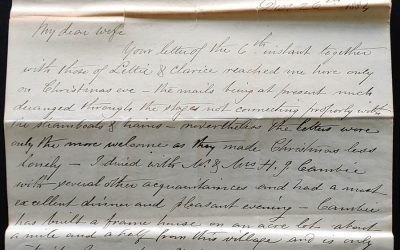 Dec 26th 1884
My dear Wife
Your letter of the 6th instant together
with those of Lettie & Clarice reached me here only
on Christmas eve - the mails being at present much
deranged through the stages not connecting properly with
the steamboats & trains - nevertheless the letters were
only the more welcome as they made Christmas less
lonely - I dined with Mr & Mrs H. J. Cambie
with several other acquaintances and had a most
excellent dinner and pleasant evening - Cambie
has built a frame house on an acre lot about
a mile and a half from this village and is only